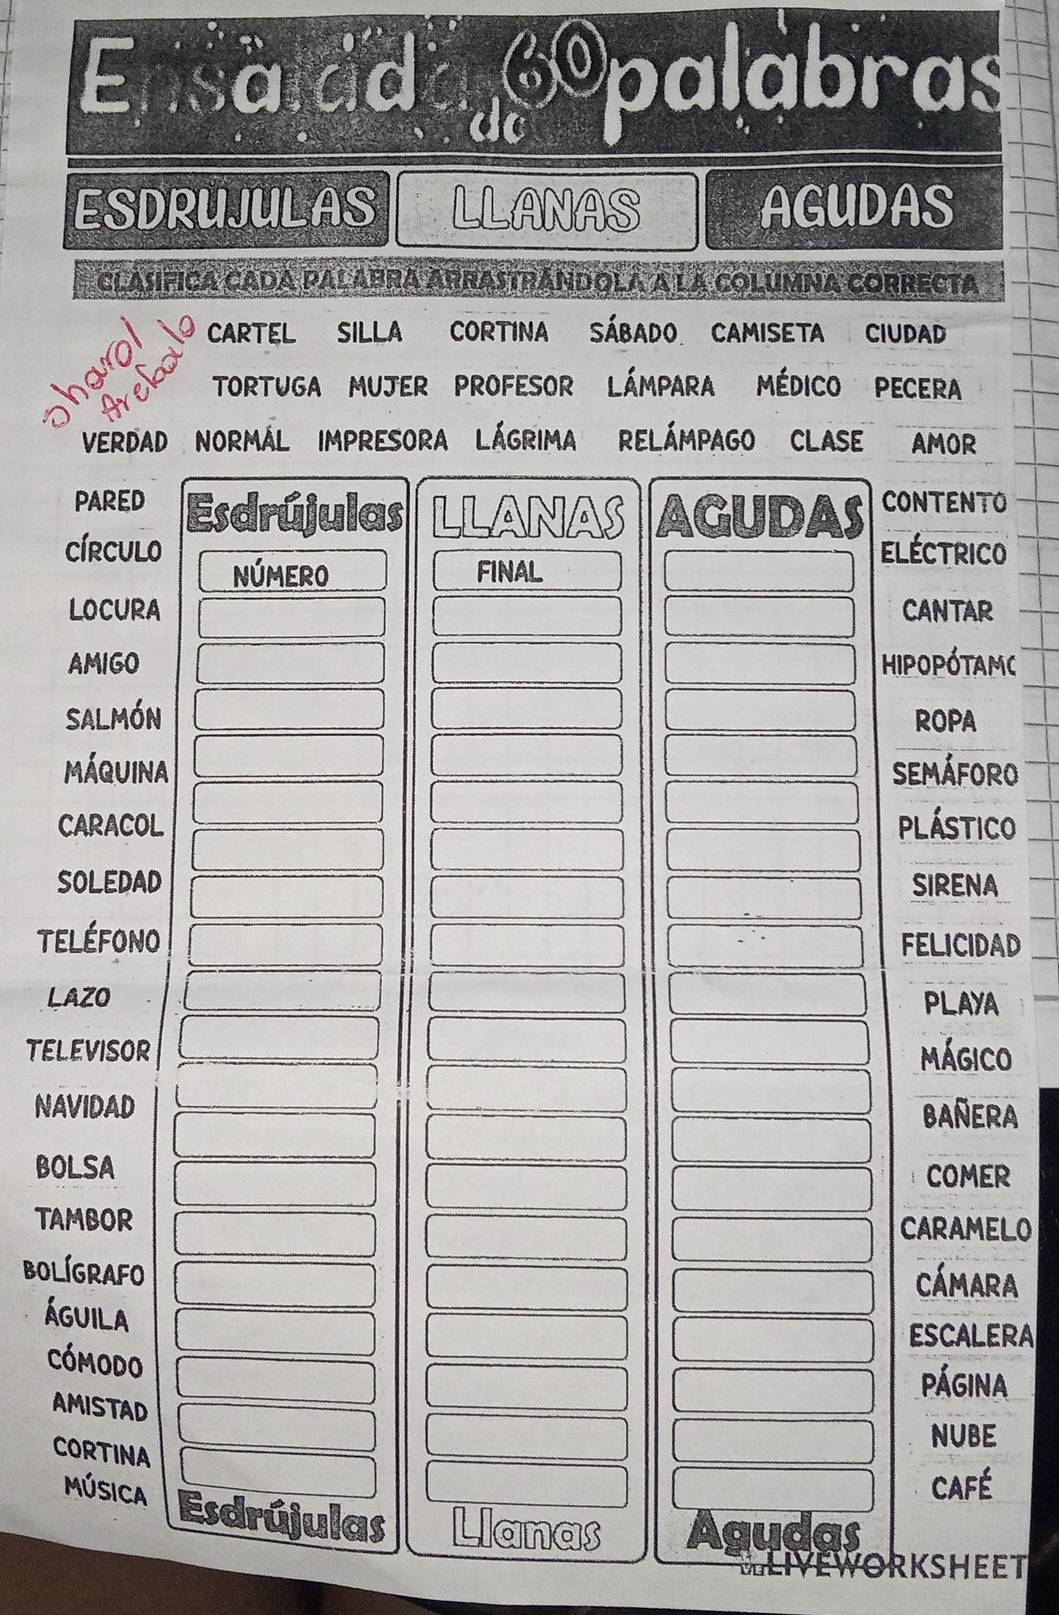 Ensalada de 60 palabras
ESDRÚJULAS LLANAS AGUDAS
CLASIFICA CADA PALABRA ARRASTRÁNDOLA A LA COLUMNA CORRECTA
CARTEL SILLA CORTINA SÁBADO CAMISETA CIUDAD
TORTUGA MUJER PROFESOR LÁMPARA MÉDICO PECERA
VERDAD NORMAL IMPRESORA LÁGRIMA RELÁMPAGO CLASE AMOR
PARED Esdrújulas LLANAS AGUDAS CONTENTO
CÍRCULO NÚMERO FINAL ELÉCTRICO
LOCURA CANTAR
AMIGO HIPOPÓTAMO
SALMÓN ROPA
MÁQUINA SEMÁFORO
CARACOL PLÁSTICO
SOLEDAD SIRENA
TELÉFONO FELICIDAD
LAZO PLAYA
TELEVISOR MÁGICO
NAVIDAD BAÑERA
BOLSA COMER
TAMBOR CARAMELO
BOLÍGRAFO CÁMARA
ÁGUILA ESCALERA
CÓMODO PÁGINA
AMISTAD NUBE
CORTINA CAFÉ
MÚSICA
Esdrújulas Llanas Agudas
LIVEWORKSHEET